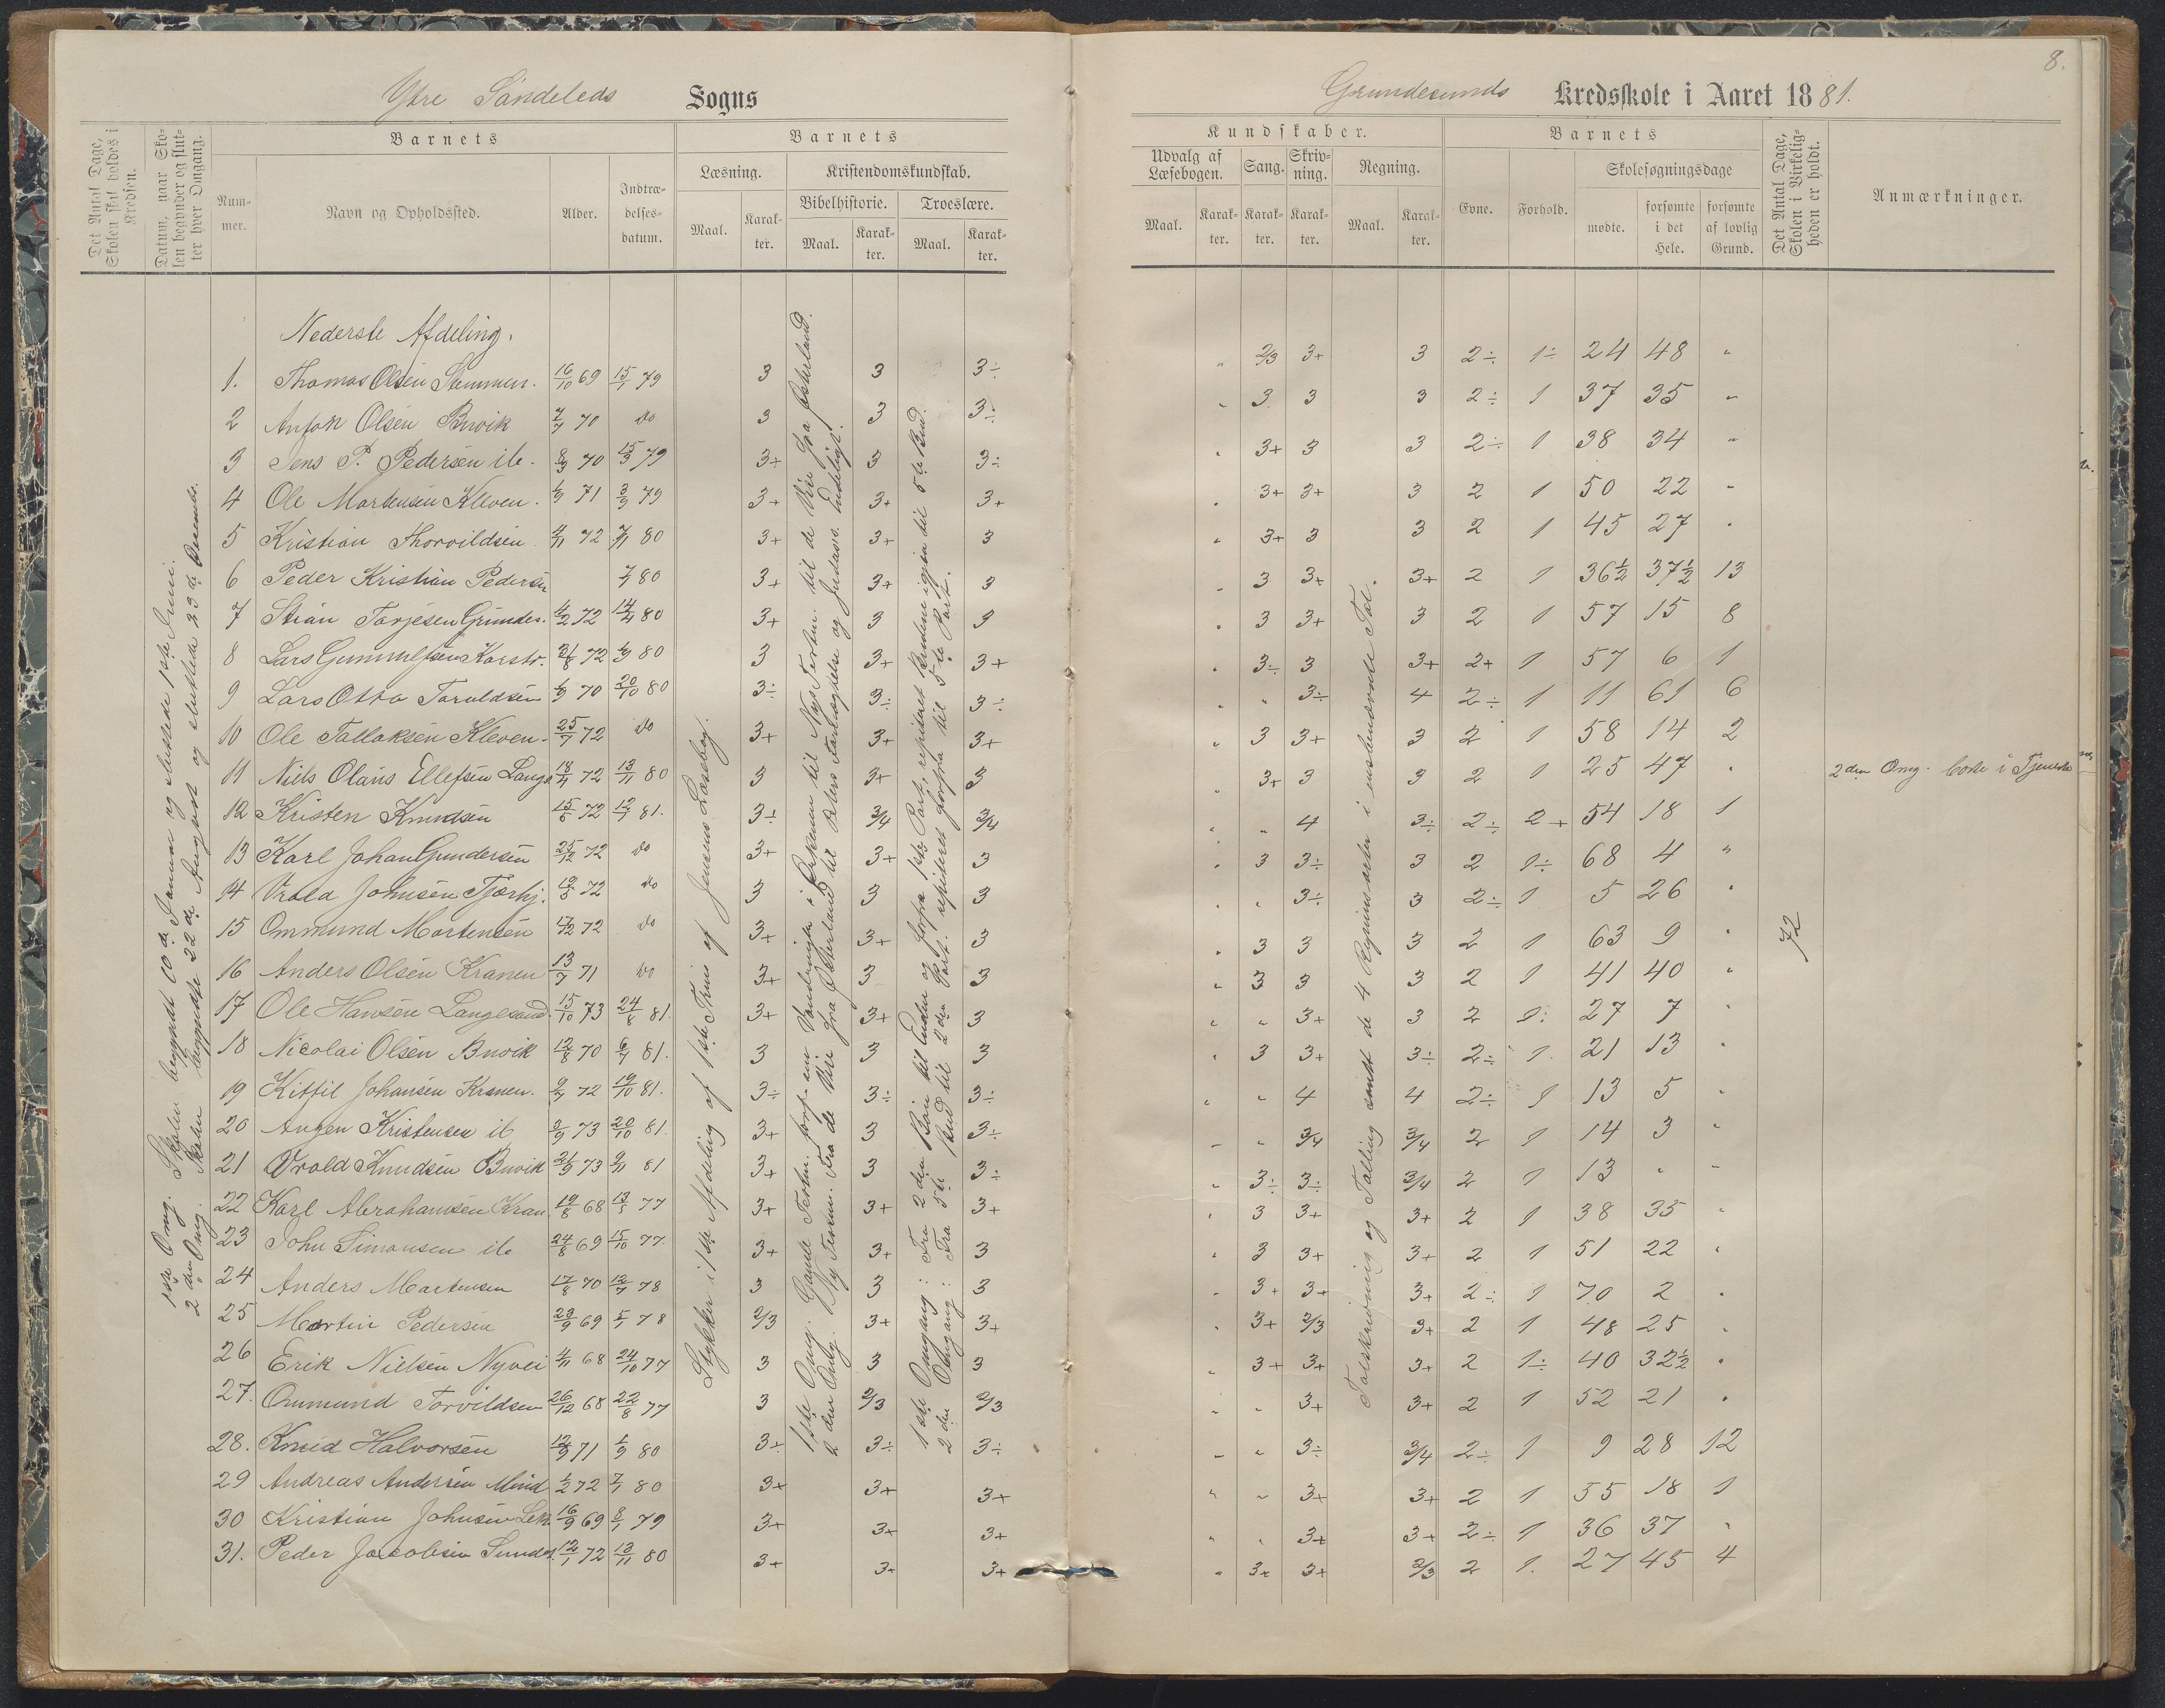 8.
Ytre Søndeleds Sogns
Grundesunds Kredsskole i Aaret 1881.
Det Antal Dage, Skolen skal holdes i Kredsen.
Datum, naar Skolen begynder og slutter hver Omgang.
Barnets
Nummer.
Navn og Opholdssted.
Alder.
Indtrædelsesdatum.
Barnets
Læsning.
Maal.
Karakter.
Kristendomskundskab.
Bibelhistorie.
Maal.
Karakter.
Troeslære.
Maal.
Karakter.
Kundskaber.
Udvalg af Læsebogen.
Maal.
Karakter.
Sang.
Karakter.
Skrivning.
Karakter.
Regning.
Maal.
Karakter.
Barnets
Evne.
Forhold.
Skolesøgningsdage
mødte.
forsømte i det Hele.
forsømte af lovlig Grund.
Det Antal Dage, Skolen i Virkeligheden er holdt.
Anmærkninger.
Nederste Afdeling.
1. Thomas Olsen Stemmen. 16/10 69 15/1 79 3 3 3÷ " 2/3 3+ 3 2÷ 1÷ 24 48 "
2 Anton Olsen Buvik 2/7 70 do 3 3 3÷ " 3 3 3 2÷ 1 37 35 "
3 Jens P. Pedersen ib. 8/3 70 15/3 79 3+ 3 3÷ " 3+ 3 3 2÷ 1 38 34 "
4 Ole Mortensen Kleven. 1/9 71 3/9 79 3+ 3+ 3+ " 3+ 3+ 3 2 1 50 22 "
5 Kristian Thorvildsen 4/11 72 7/11 80 3+ 3+ 3 " 3+ 3 3 2 1 45 27 "
6 Peder Kristian Pedersen 7/1 80 3+ 3+ 3 " 3 3+ 3+ 2 1 36½ 37½ 13
7 Stian Torjesen Grundes. 4/2 72 14/4 80 3+ 3 3 " 3 3+ 3 2 1 57 15 8
8 Lars Gunnulfsen Korstv. 31/8 72 1/9 80 3 3+ 3+ " 3÷ 3 3+ 2+ 1 57 6 1
9 Lars Otto Taraldsen 1/9 70 20/10 80 3÷ 3÷ 3÷ " " 3÷ 4 2÷ 1 11 61 6
10 Ole Tallaksen Kleven 25/7 72 do 3+ 3+ 3+ " 3 3+ 3 2 1 58 14 2
11 Niels Olaus Ellefsen Lange 18/4 72 13/11 80 3 3+ 3 " 3+ 3 3 2 1 25 47 " 2den Omg. borte i Tjeneste
12 Kristen Knudsen 15/8 72 12/1 81. 3÷ 3/4 3/4 " " 4 3÷ 2÷ 2+ 54 18 1
13 Karl Johan Gundersen 25/12 72 do 3+ 3+ 3 " 3 3÷ 3 2 1÷ 68 4 "
14 Vrold Johnsen Tjærhj. 19/5 72 do 3 3 3 " " 3÷ 3 2÷ 1 5 26 "
15 Ommund Mortensen 17/12 72 do 3+ 3+ 3 " 3 3 3 2 1 63 9 " 72
16 Anders Olsen Kranen 13/7 71 do 3+ 3 3 " 3 3 3 2 1 41 40 "
17 Ole Hansen Langesand. 15/10 73 24/8 81. 3+ 3+ 3 " " 3+ 3 2 1÷ 27 7 "
18 Nicolai Olsen Buvik 12/8 70 6/4 81. 3 3 3 " 3 3+ 3÷ 2÷ 1 21 13 "
19 Kittil Johansen Kranen. 9/7 72 19/10 81. 3÷ 3÷ 3÷ " " 4 4 2÷ 1 13 5 "
20 Augen Kristensen ib 9/9 73 20/10 81. 3+ 3 3÷ " " 3/4 3/4 2 1 14 3 "
21 Vrold Knudsen Buvik 21/9 73 9/11 81 3+ 3 3÷ " 3÷ 3÷ 3/4 2 1 13 " "
22 Karl Abrahamsen Kran. 19/8 68 13/8 77 3+ 3+ 3+ " 3 3+ 3+ 2 1 38 35 "
23 John Simonsen ib 24/8 69 15/10 77 3+ 3+ 3 " 3 3+ 3+ 2 1 51 22 "
24 Anders Martensen 17/8 70 12/7 78 3 3 3 " 3+ 3+ 3+ 2÷ 1 70 2 "
25 Martin Pedersen 23/9 69 5/1 78 2/3 3+ 3+ " 3+ 2/3 3+ 2 1 48 25 "
26 Erik Nielsen Nyvei 4/11 68 24/10 77 3 3 3 " 3+ 3+ 3+ 2 1÷ 40 32½ "
27. Ommund Torvildsen 26/12 68 22/8 77 3 2/3 2/3 " " 3+ 3+ 2 1 52 21 "
28. Knud Halvorsen 12/9 71 1/9 80 3÷ 3÷ 3÷ " " 3÷ 3/4 2÷ 1 9 28 12
29 Andreas Andersen Mind 1/2 72 7/1 80 3+ 3+ 3+ " " 3+ 3+ 2 1 55 18 1
30 Kristian Johnsen Lek. 16/9 69 8/1 79 3+ 3+ 3+ " " 3+ 3+ 2÷ 1 36 37 "
31. Peder Jacobsen Sundes. 12/1 72 13/11 80 3+ 3+ 3+ " 3+ 3+ 2/3 2 1. 27 45 4
1ste Omg. Skolen begyndt 10de Januar og sluttede 1ste Juni.
2den Omg. Skolen begyndte 22de August og sluttede 23de December.
Stykker i 1ste Afdeling af 1ste Trin af Jensens Læsebog.
1ste Omg. Gamle Testm. forf. ein Vandringen i Ørkenen til Nys Testm. til de Vise fra Østerland.
2den Omg. Ny Testm. Fra de Vise fra Østerland til Peters Fornægtelse og Judases Endeligt.
1ste Omgang: Fra 2den Bøn til Enden og forfra 1ste Part, repiteret Endnu igjen til 5te Bud.
2den Omgang: Fra 5te Bud til 2den Part. repiteret forfra til 5te Part.
Talskrivning og Tælling samt de 4 Regningsarter i ensbenævnte Tal.